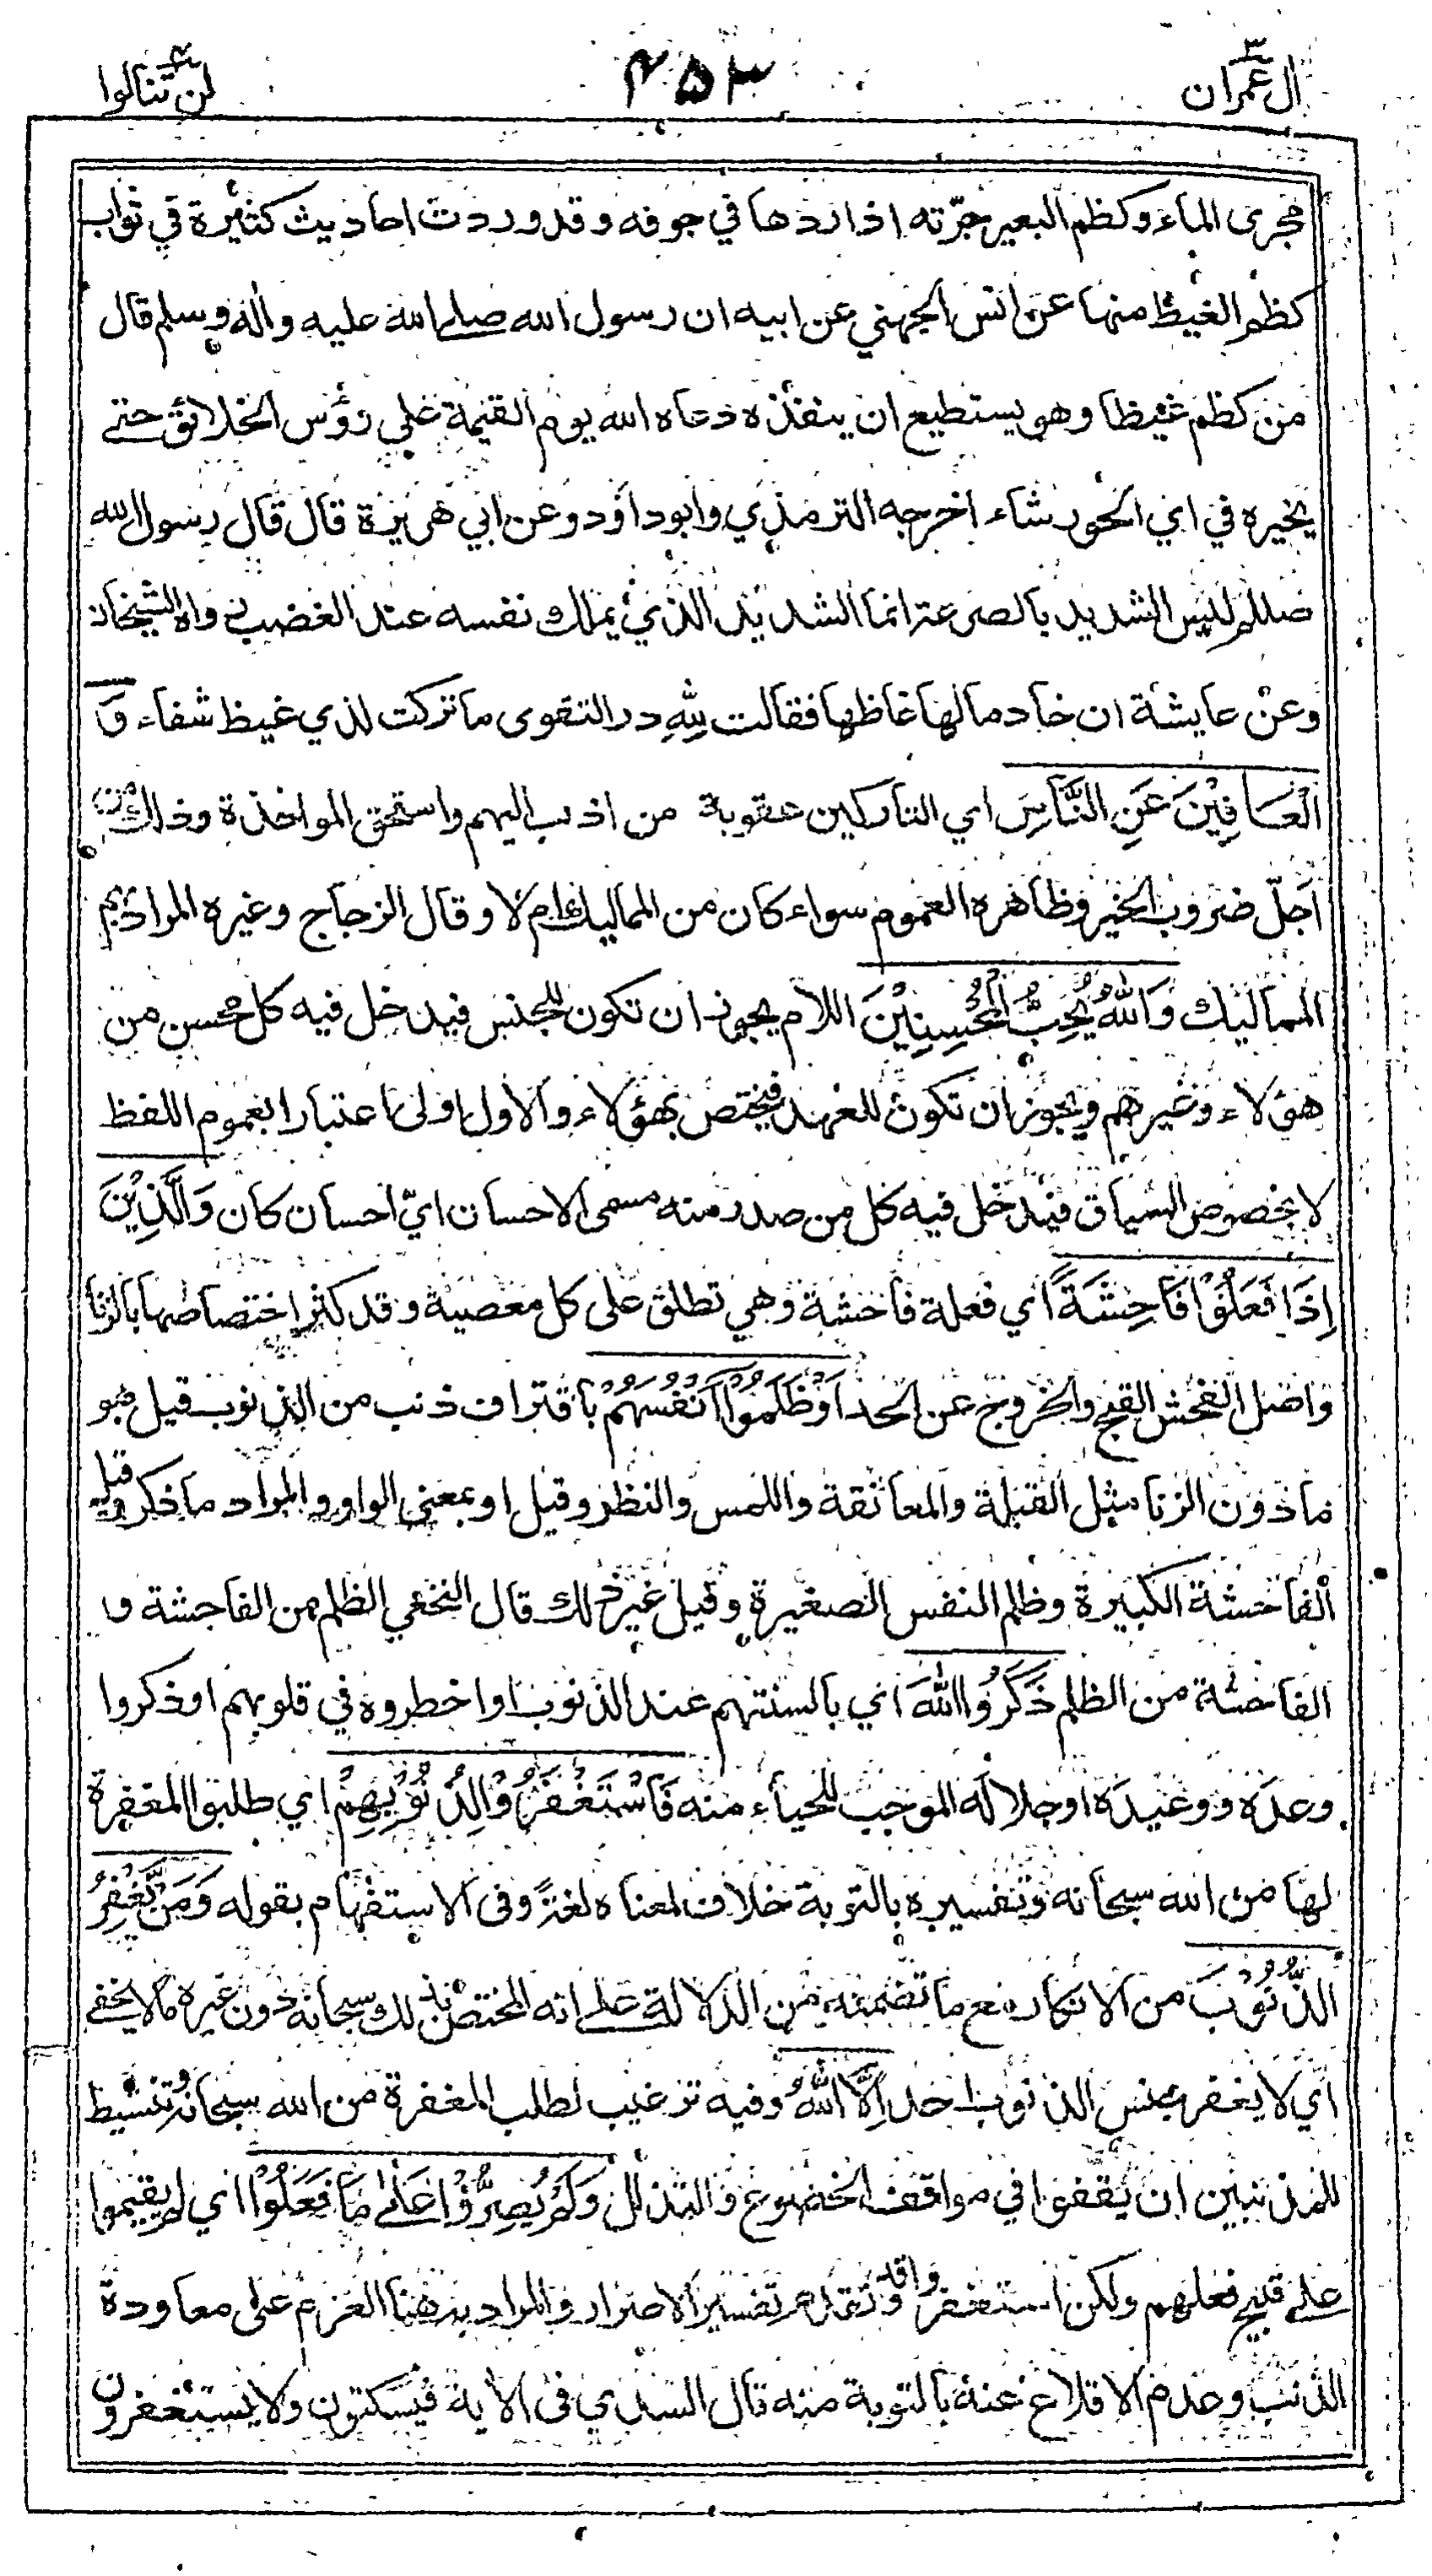 اٰل عمران ٣
٤٥٣
لن تنالوا ٤
مجرى الماء وكظم البعير جرّته اذا ردها في جوفه وقد وردت احاديث كثيرة في ثواب
كظم الغيظ منها عن انس الجهني عن ابيه ان رسول الله صلى الله عليه واٰله وسلم قال
من كظم غيظا وهو يستطيع ان ينفذه دعاه الله يوم القيٰمة على رؤس الخلائق حتى
يخيره في اي الحور شاء اخرجه الترمذي وابوداؤد وعن ابي هريرة قال قال رسول الله
صللم ليس الشديد بالصرعة انما الشديد الذي يملك نفسه عند الغضب رواه الشيخان
وعن عايشة ان خادما لها غاظها فقالت لله در التقوى ما تركت لذي غيظ شفاء وَ
الْعَافِيْنَ عَنِ النَّاسِ اي التاركين عقوبة من اذنب اليهم واستحق المواخذة وذلك من
اجلّ ضروب الخير وظاهره العموم سواء كان من المماليك ام لا وقال الزجاج وغيره المراد بهم
المماليك وَاللهُ يُحِبُّ الْمُحْسِنِيْنَ اللام يجوز ان تكون للجنس فيدخل فيه كل محسن من
هؤلاء وغيرهم ويجوز ان تكون للعهد فيختص بهؤلاء والاول اولى اعتبارا بعموم اللفظ
لا بخصوص السياق فيدخل فيه كل من صدر منه مسمى الاحسان ايّ احسان كان وَالَّذِيْنَ
اِذَا فَعَلُوْا فَاحِشَةً اي فعلة فاحشة وهي تطلق على كل معصية وقد كثر اختصاصها بالزنا
واصل الفحش القبح والخروج عن الحد اَوْ ظَلَمُوْا اَنْفُسَهُمْ باقتراف ذنب من الذنوب قيل هو
ما دون الزنا مثل القبلة والمعانقة واللمس والنظر وقيل او بمعنى الواو والمراد ما ذكر وقيل
الفاحشة الكبيرة وظلم النفس الصغيرة وقيل غير ذلك قال النخعي الظلم من الفاحشة و
الفاحشة من الظلم ذَكَرُوا اللهَ اي بالسنتهم عند الذنوب او اخطروه في قلوبهم او ذكروا
وعده ووعيده او جلاله الموجب للحياء منه فَاسْتَغْفَرُوْا لِذُنُوْبِهِمْ اي طلبوا المغفرة
لها من الله سبحانه وتفسيره بالتوبة خلاف لمعناه لغةً وفى الاستفهام بقوله وَمَنْ يَّغْفِرُ
الذُّنُوْبَ من الانكار مع ما تضمنه من الدلالة على انه المختص بذلك سبحانه دون غيره مالا يخفى
اي لا يغفر جنس الذنوب احد اِلَّا اللهُ وفيه ترغيب لطلب المغفرة من الله سبحانه وتنشيط
للمذنبين ان يقفوا في مواقف الخضوع والتذلل وَلَمْ يُصِرُّوْا عَلٰى مَا فَعَلُوْا اي لم يقيموا
على قبيح فعلهم ولكن استغفروا وقد تقدم تفسير الاصرار والمراد به هنا العزم على معاودة
الذنب وعدم الاقلاع عنه بالتوبة منه قال السدي فى الاٰية فيسكتون ولا يستغفرون